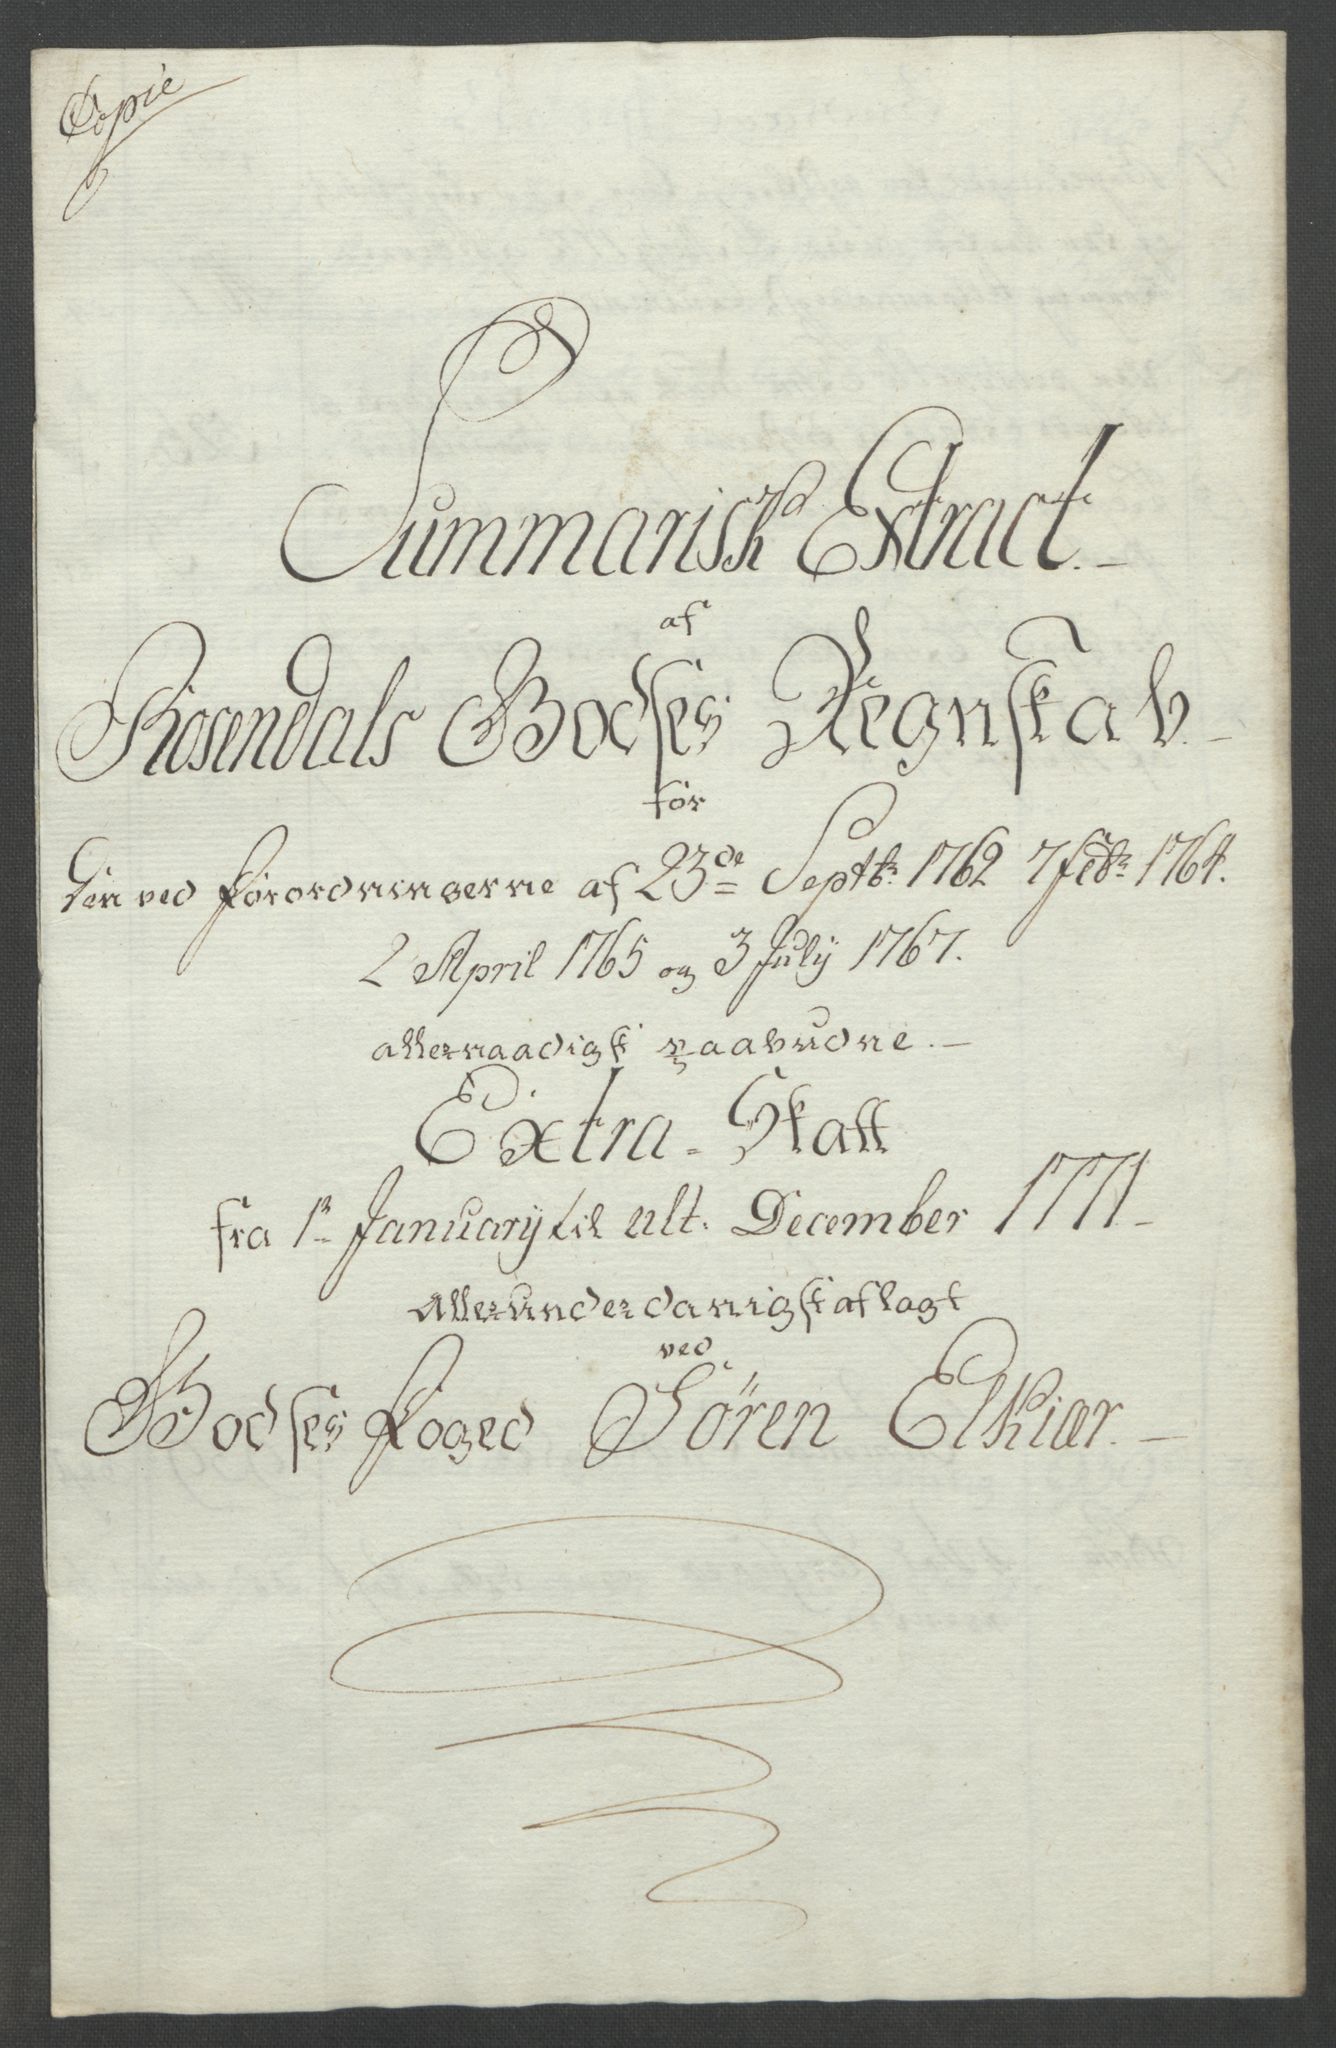 Copie
Summarisk Extract.
af
Rosendals Godses Regnskab.
for
den ved Forordningerne af 23de Septbr. 1762 7 Febr. 1764.
2 April 1765 og 3 July 1767.
allernaadigst paabudne.
Extra-Skatt
fra 1r January til ult. December 1771
Allerunderdanigst aflagt
ved
Godses Foged Sören Elkiær.